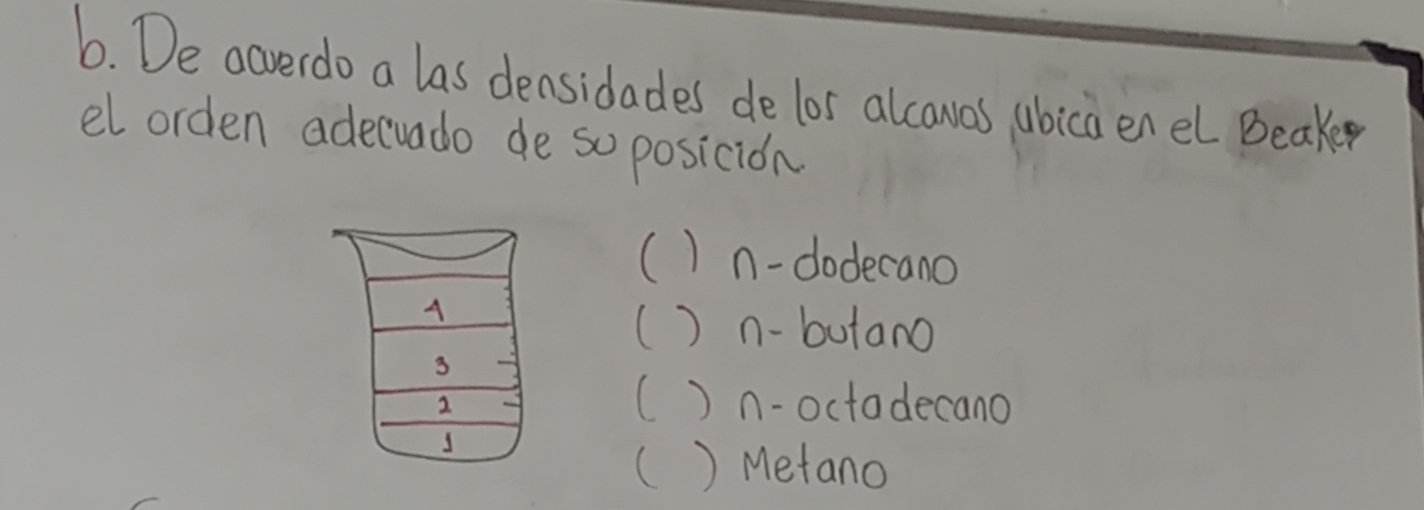 b. De acuerdo a las densidades de los alcanos ubica en el Beaker
el orden adecuado de su posición.
4
3
2
1
( ) n-dodecano
( ) n-butano
( ) n-octadecano
( ) Metano